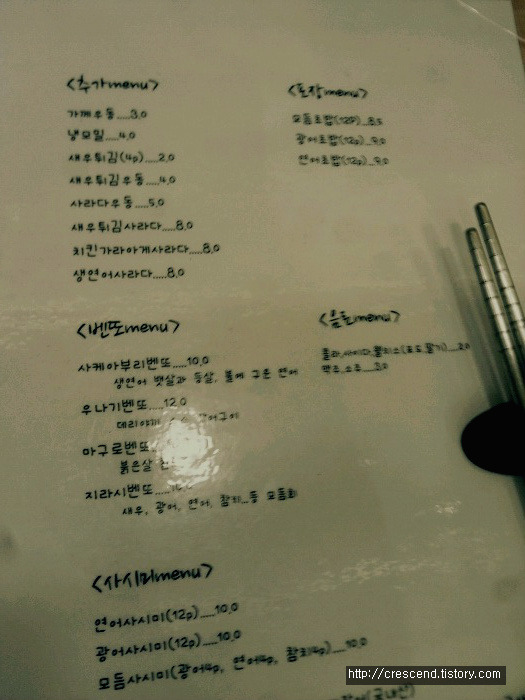 <추가menu>
가께우동.....3,0
냉모밀.....4,0
새우튀김(4p).....2,0
새우튀김우동.....4,0
사라다우동.....5,0
새우튀김사라다.....8,0
치킨가라아게사라다.....8,0
생연어사라다.....8,0
<포장menu>
모듬초밥(12P)...8,5
광어초밥(12p)...9,0
연어초밥(12p)...9,0
<벤또menu>
사케아부리벤또.....10,0
생연어 뱃살과 등살, 불에 구운 연어
우나기벤또.....12,0
데리야끼
마구로벤또
붉은살
지라시벤또
새우, 광어, 연어, 참치...등 모듬회
<음료menu>
콜라,사이다,쿨피스(포도,딸기)...2,0
맥주,소주...3,0
<사시미menu>
연어사시미(12p).....10,0
광어사시미(12p).....10,0
모듬사시미(광어4p, 연어4p, 참치4p).....10,0
(국내산)
http://crescend.tistory.com